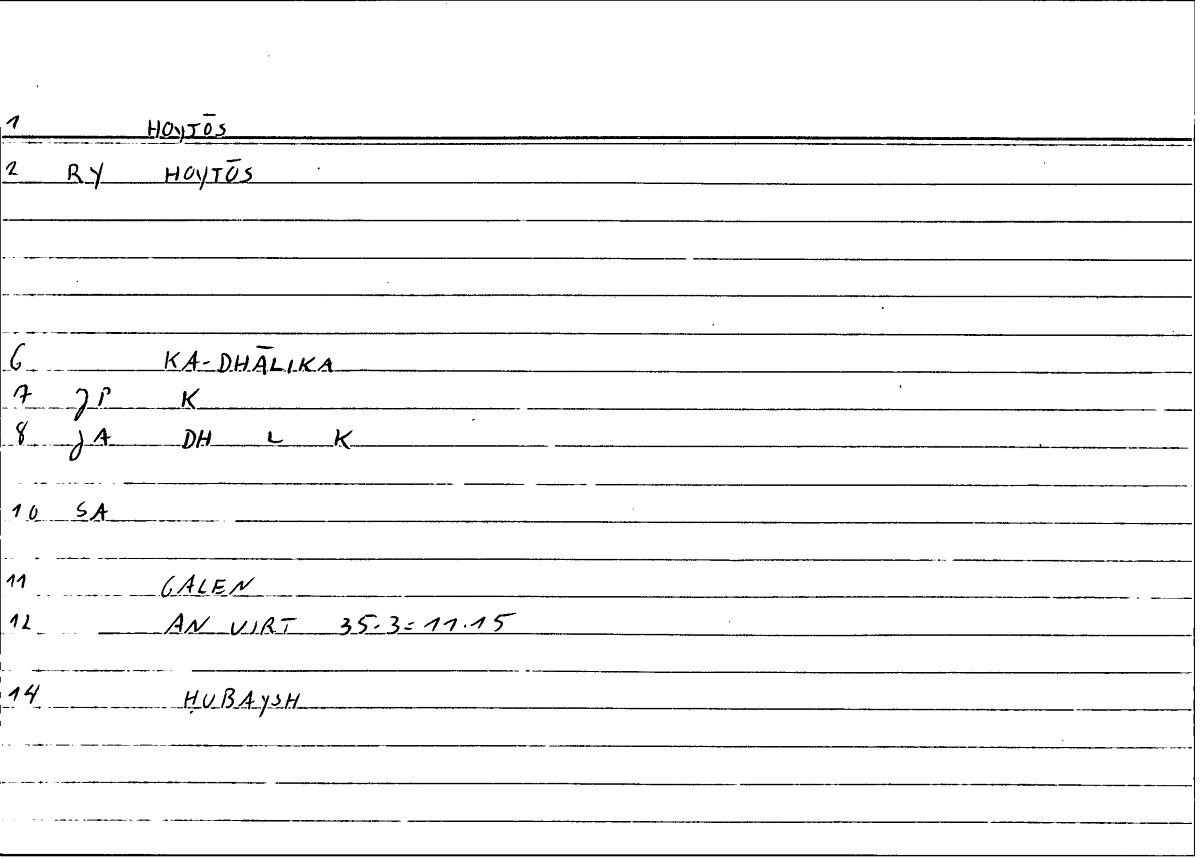 1 HOYTŌS
2 RY HOYTŌS
6 KA-DHĀLIKA
7 JP K
8 JA DH L K
10 SA
11 GALEN
12 AN VIRT 35.3=11.15
14 ḤUBAYSH